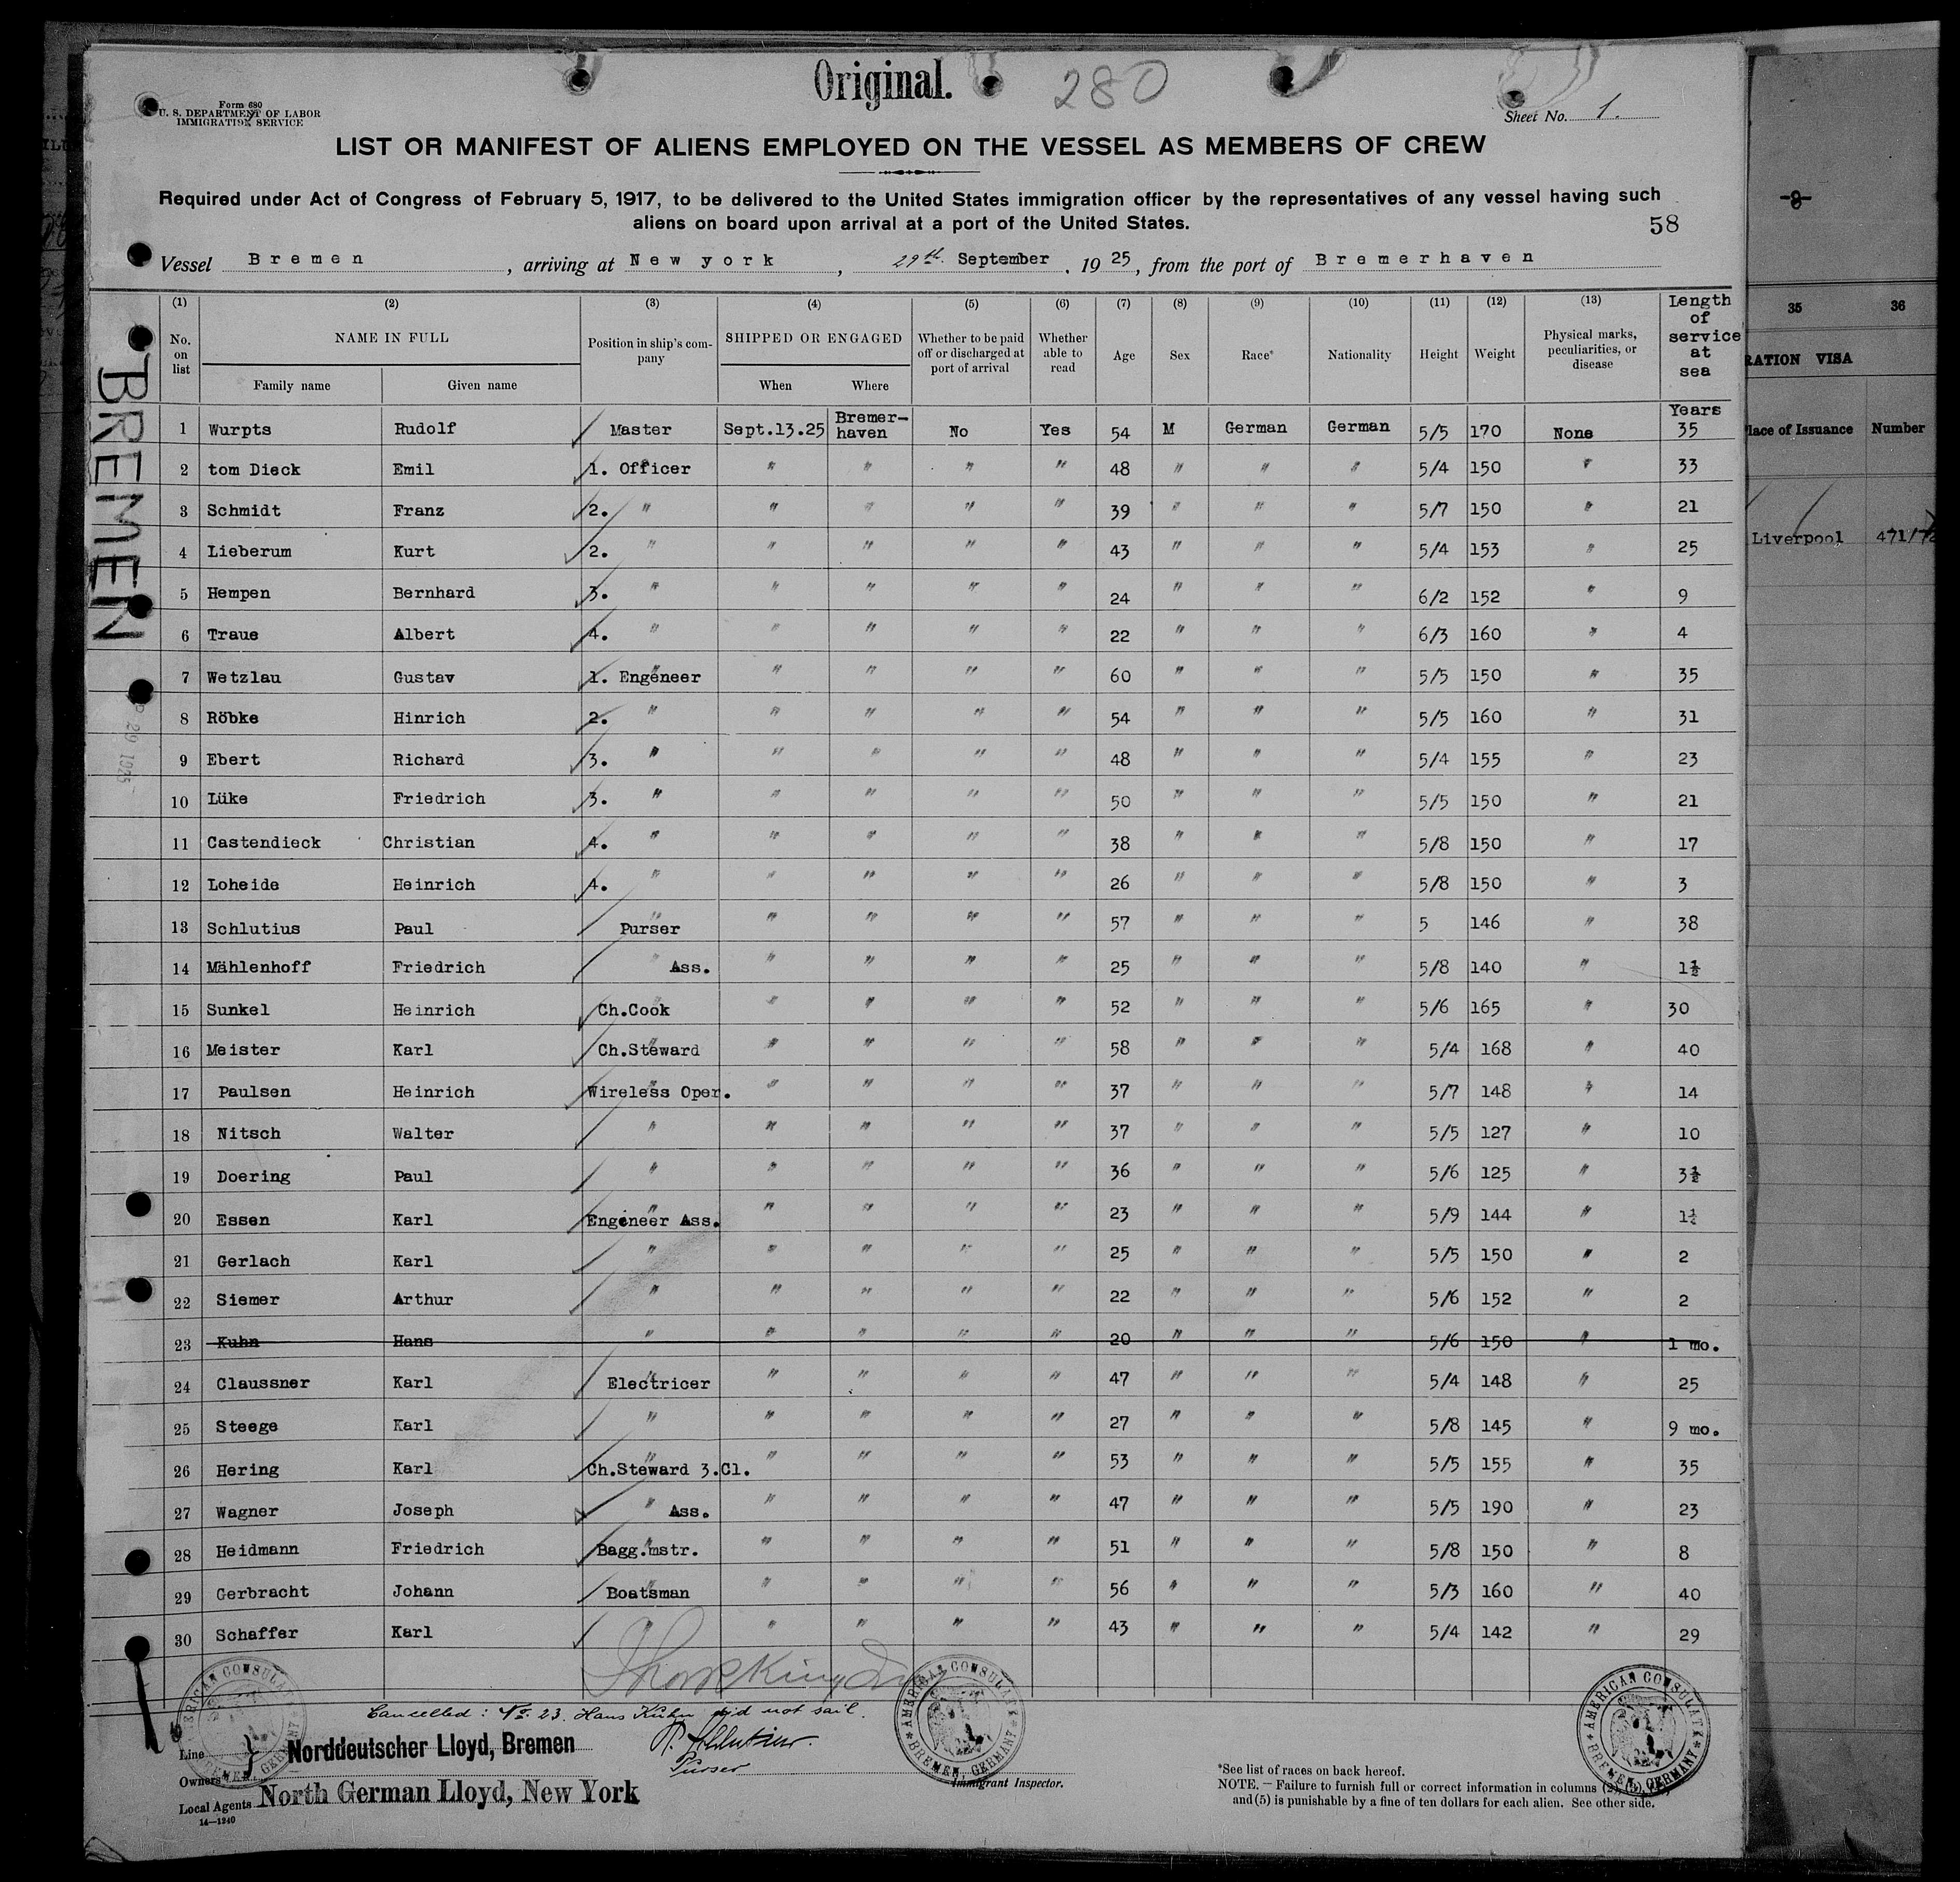 Original.
280
Form 680
U. S. DEPARTMENT OF LABOR
IMMIGRATION SERVICE
Sheet No. 1.
LIST OR MANIFEST OF ALIENS EMPLOYED ON THE VESSEL AS MEMBERS OF CREW
Required under Act of Congress of February 5, 1917, to be delivered to the United States immigration officer by the representatives of any vessel having such
aliens on board upon arrival at a port of the United States.
58
Vessel Bremen, arriving at New york, 29th. September, 1925, from the port of Bremerhaven
(1) (2) (3) (4) (5) (6) (7) (8) (9) (10) (11) (12) (13) Length of service at sea
No. on list NAME IN FULL Position in ship's company SHIPPED OR ENGAGED Whether to be paid off or discharged at port of arrival Whether able to read Age Sex Race* Nationality Height Weight Physical marks, peculiarities, or disease
Family name Given name When Where
Years
1 Wurpts Rudolf Master Sept.13.25 Bremer-haven No Yes 54 M German German 5/5 170 None 35
2 tom Dieck Emil 1. Officer " " " " 48 " " " 5/4 150 " 33
3 Schmidt Franz 2. " " " " " 39 " " " 5/7 150 " 21
4 Lieberum Kurt 2. " " " " " 43 " " " 5/4 153 " 25
5 Hempen Bernhard 3. " " " " " 24 " " " 6/2 152 " 9
6 Traue Albert 4. " " " " " 22 " " " 6/3 160 " 4
7 Wetzlau Gustav 1. Engeneer " " " " 60 " " " 5/5 150 " 35
8 Röbke Hinrich 2. " " " " " 54 " " " 5/5 160 " 31
9 Ebert Richard 3. " " " " " 48 " " " 5/4 155 " 23
10 Lüke Friedrich 3. " " " " " 50 " " " 5/5 150 " 21
11 Castendieck Christian 4. " " " " " 38 " " " 5/8 150 " 17
12 Loheide Heinrich 4. " " " " " 26 " " " 5/8 150 " 3
13 Schlutius Paul Purser " " " " 57 " " " 5 146 " 38
14 Mählenhoff Friedrich " Ass. " " " " 25 " " " 5/8 140 " 1½
15 Sunkel Heinrich Ch.Cook " " " " 52 " " " 5/6 165 " 30
16 Meister Karl Ch.Steward " " " " 58 " " " 5/4 168 " 40
17 Paulsen Heinrich Wireless Oper. " " " " 37 " " " 5/7 148 " 14
18 Nitsch Walter " " " " " 37 " " " 5/5 127 " 10
19 Doering Paul " " " " " 36 " " " 5/6 125 " 3½
20 Essen Karl Engeneer Ass. " " " " 23 " " " 5/9 144 " 1½
21 Gerlach Karl " " " " " 25 " " " 5/5 150 " 2
22 Siemer Arthur " " " " " 22 " " " 5/6 152 " 2
23 Kuhn Hans " " " " " 20 " " " 5/6 150 " 1 mo.
24 Claussner Karl Electricer " " " " 47 " " " 5/4 148 " 25
25 Steege Karl " " " " " 27 " " " 5/8 145 " 9 mo.
26 Hering Karl Ch.Steward 3.Cl. " " " " 53 " " " 5/5 155 " 35
27 Wagner Joseph " Ass. " " " " 47 " " " 5/5 190 " 23
28 Heidmann Friedrich Bagg.mstr. " " " " 51 " " " 5/8 150 " 8
29 Gerbracht Johann Boatsman " " " " 56 " " " 5/3 160 " 40
30 Schaffer Karl " " " " " 43 " " " 5/4 142 " 29
Cancelled: No. 23. Hans Kuhn did not sail.
P. Schlutius.
Purser
Line
Owners
Norddeutscher Lloyd, Bremen
Local Agents North German Lloyd, New York
14—1240
Immigrant Inspector.
*See list of races on back hereof.
NOTE.— Failure to furnish full or correct information in columns (2), (3),
and (5) is punishable by a fine of ten dollars for each alien. See other side.
AMERICAN CONSULATE BREMEN, GERMANY
AMERICAN CONSULATE BREMEN, GERMANY
AMERICAN CONSULATE BREMEN, GERMANY
BREMEN
29 1925
8
35 36
RATION VISA
Place of Issuance Number
Liverpool 471/